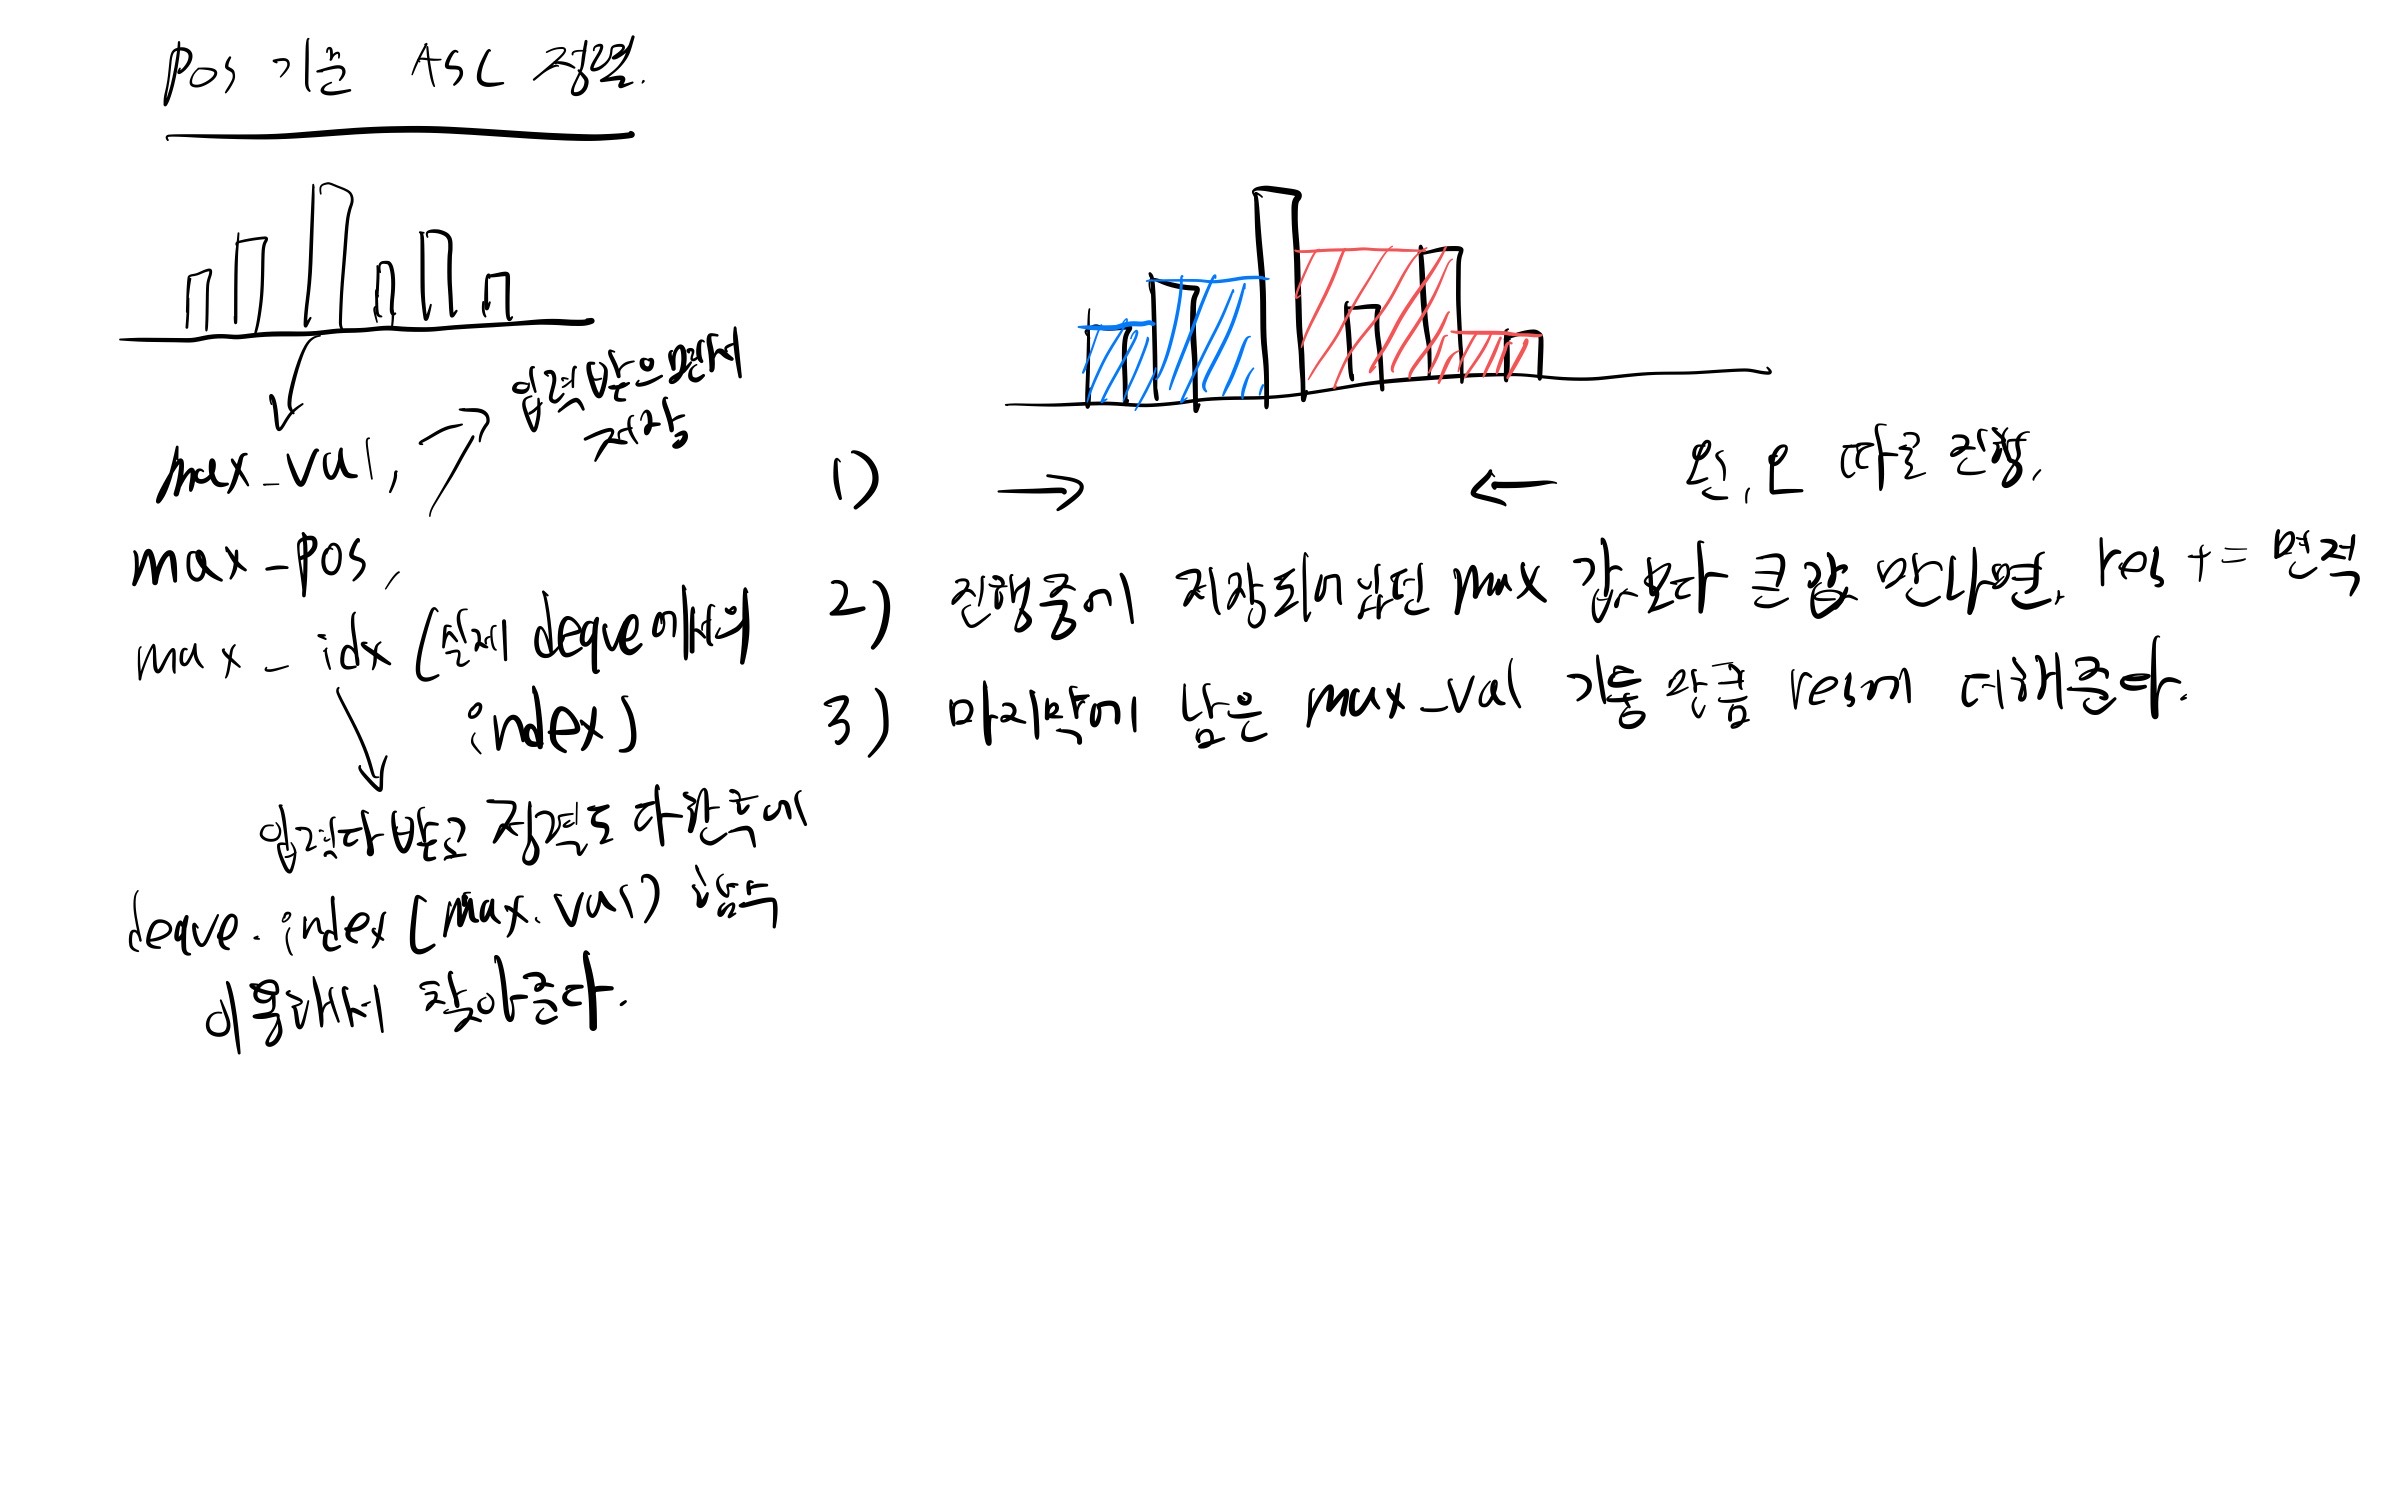 pos 기준 ASC 정렬.
입력 받으면서
저장
max_val,
max_pos,
max_idx (실제 deque에서
index)
입력 다 받고 정렬도 다 한 후에
deque.index(max.val) 함수
이용해서 찾아준다.
1) → ← 왼, 오 따로 진행.
2) 진행중에 저장되어 있던 max 값보다 큰 값 만나면, res += 면적
3) 마지막에 남은 max_val 기둥 만큼 res에 더해준다.